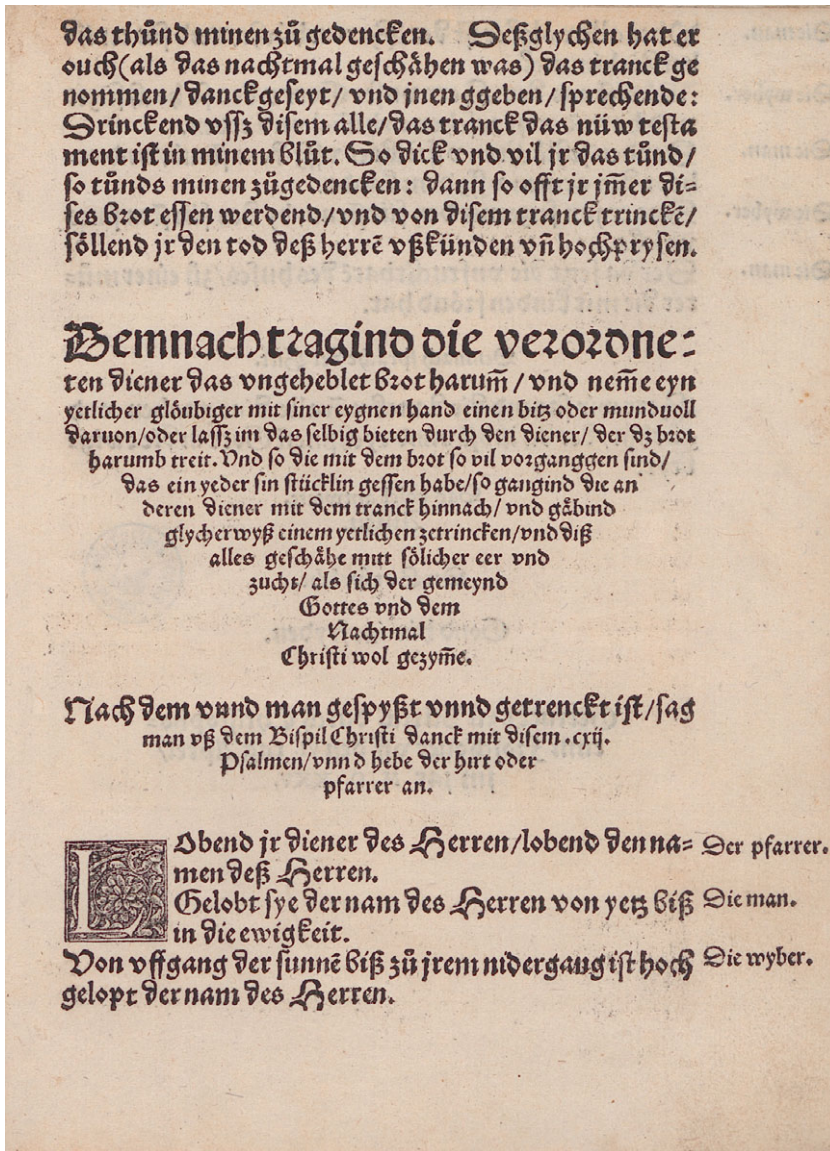 das thůnd minen zů gedencken. Deßglychen hat er
ouch (als das nachtmal geschähen was) das tranck ge
nommen/ danck geseyt/ vnd jnen ggeben/ sprechende:
Drinckend vssz disem alle/ das tranck das nüw testa
ment ist in minem blůt. So dick vnd vil jr das tůnd/
so tůnds minen zůgedencken: dann so offt jr jm̃er di⸗
ses brot essen werdend/ vnd von disem tranck trinckē/
söllend jr den tod deß herrē vßkünden vñ hochprysen.
Demnach tragind die verordne⸗
ten diener das vngeheblet brot harum̃/ vnd nem̃e eyn
yetlicher glöubiger mit siner eygnen hand einen bitz oder mundvoll
daruon/ oder lassz im das selbig bieten durch den diener/ der dz brot
harumb treit. Vnd so die mit dem brot so vil vorganggen sind/
das ein yeder sin stücklin gessen habe/ so gangind die an
deren diener mit dem tranck hinnach/ vnd gäbind
glycherwyß einem yetlichen zetrincken/ vnd diß
alles geschähe mitt sölicher eer vnd
zucht/ als sich der gemeynd
Gottes vnd dem
Nachtmal
Christi wol gezym̃e.
Nach dem vnnd man gespyßt vnnd getrenckt ist/ sag
man vß dem Bispil Christi danck mit disem .cxij.
Psalmen/ vnnd hebe der hirt oder
pfarrer an.
LObend jr diener des Herren/ lobend den na⸗ Der pfarrer.
men deß Herren.
Gelobt sye der nam des Herren von yetz biß Die man.
in die ewigkeit.
Von vffgang der sunnē biß zů jrem nidergang ist hoch Die wyber.
gelopt der nam des Herren.